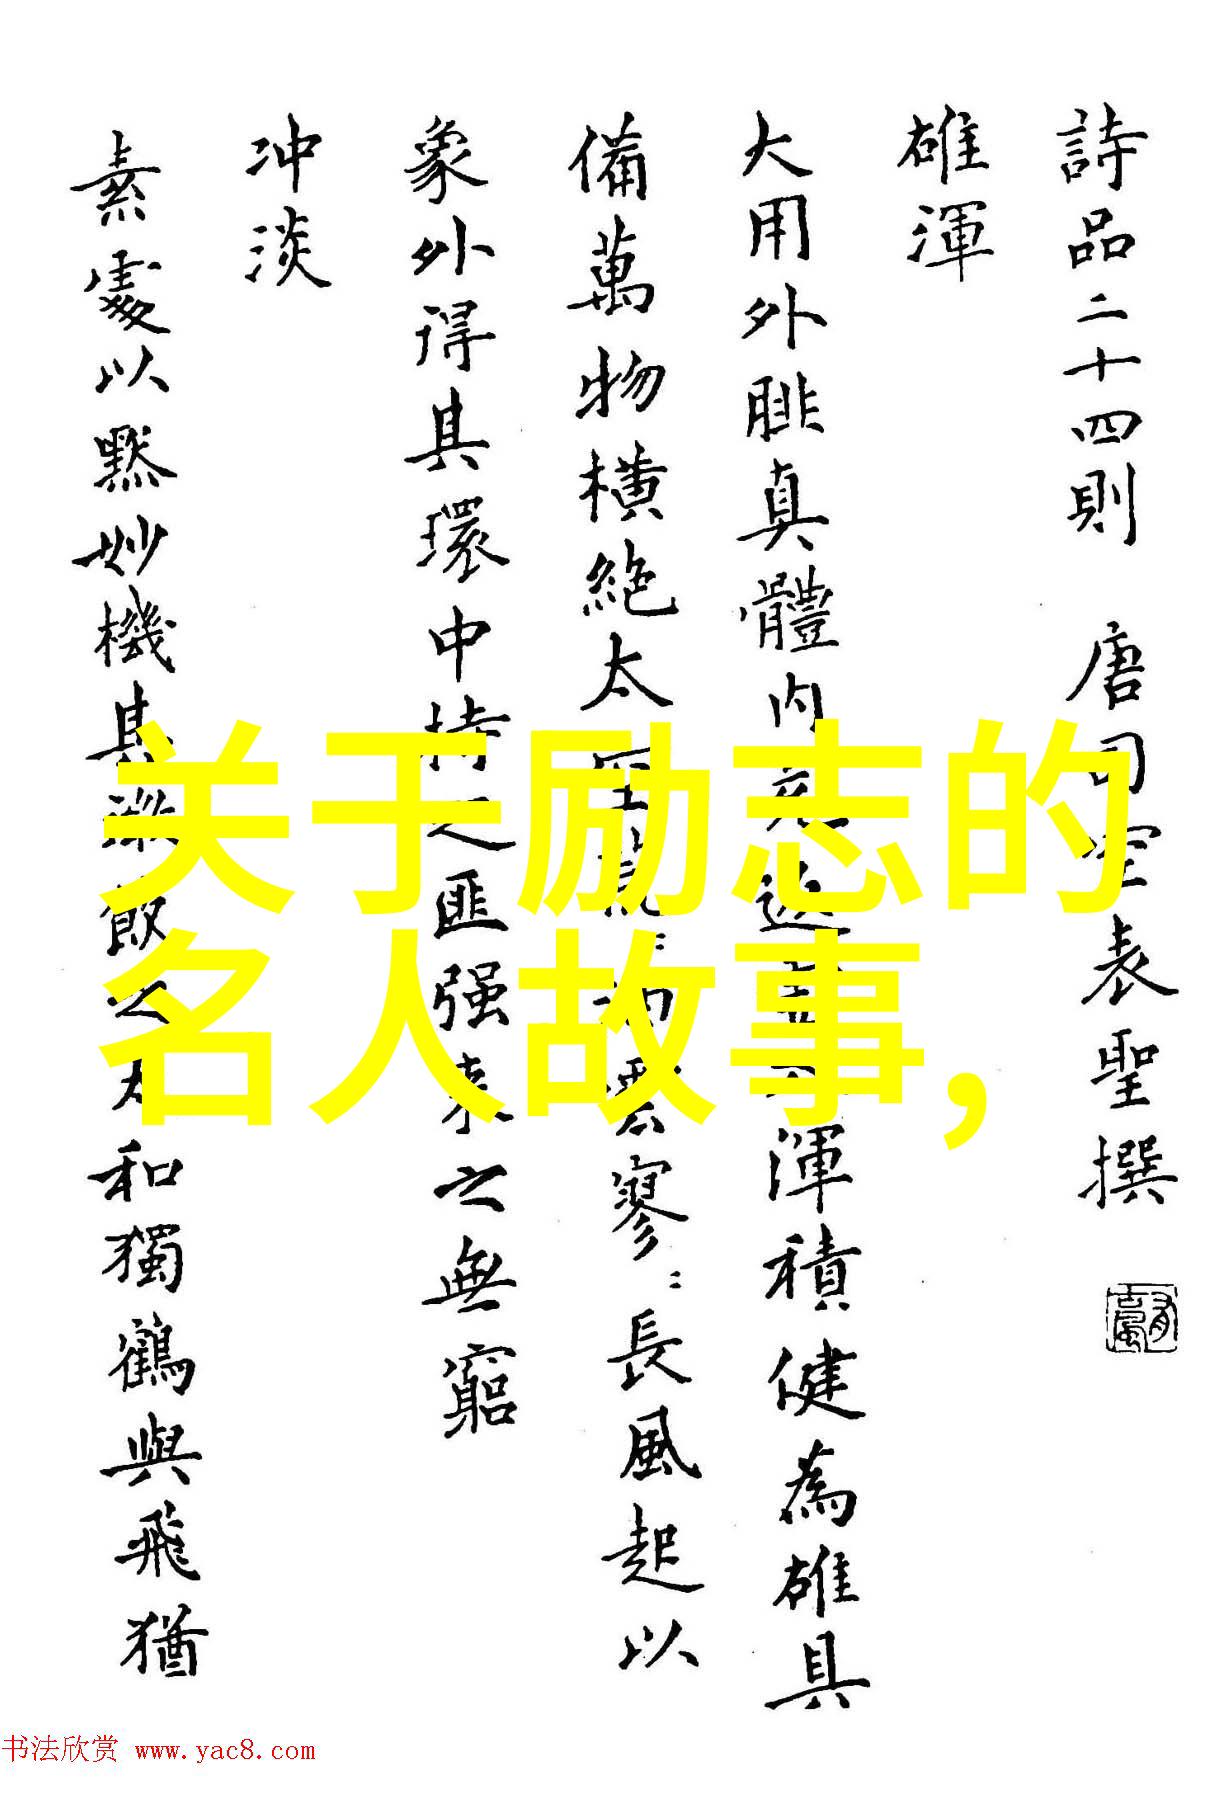 詩品二十四則 唐司空表聖撰
雄渾
大用外腓真體内充返渾積健為雄具
備萬物橫絕太空荒〻油雲寥〻長風起以
象外得其環中持之匪强来之無窮
冲淡
素處以默妙機其微飲之太和獨鶴與飛猶
关于励志的
名人故事,
书法欣赏 www.yac8.com